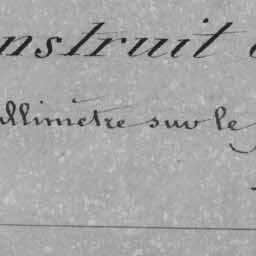 nstruit
illimètre sur le